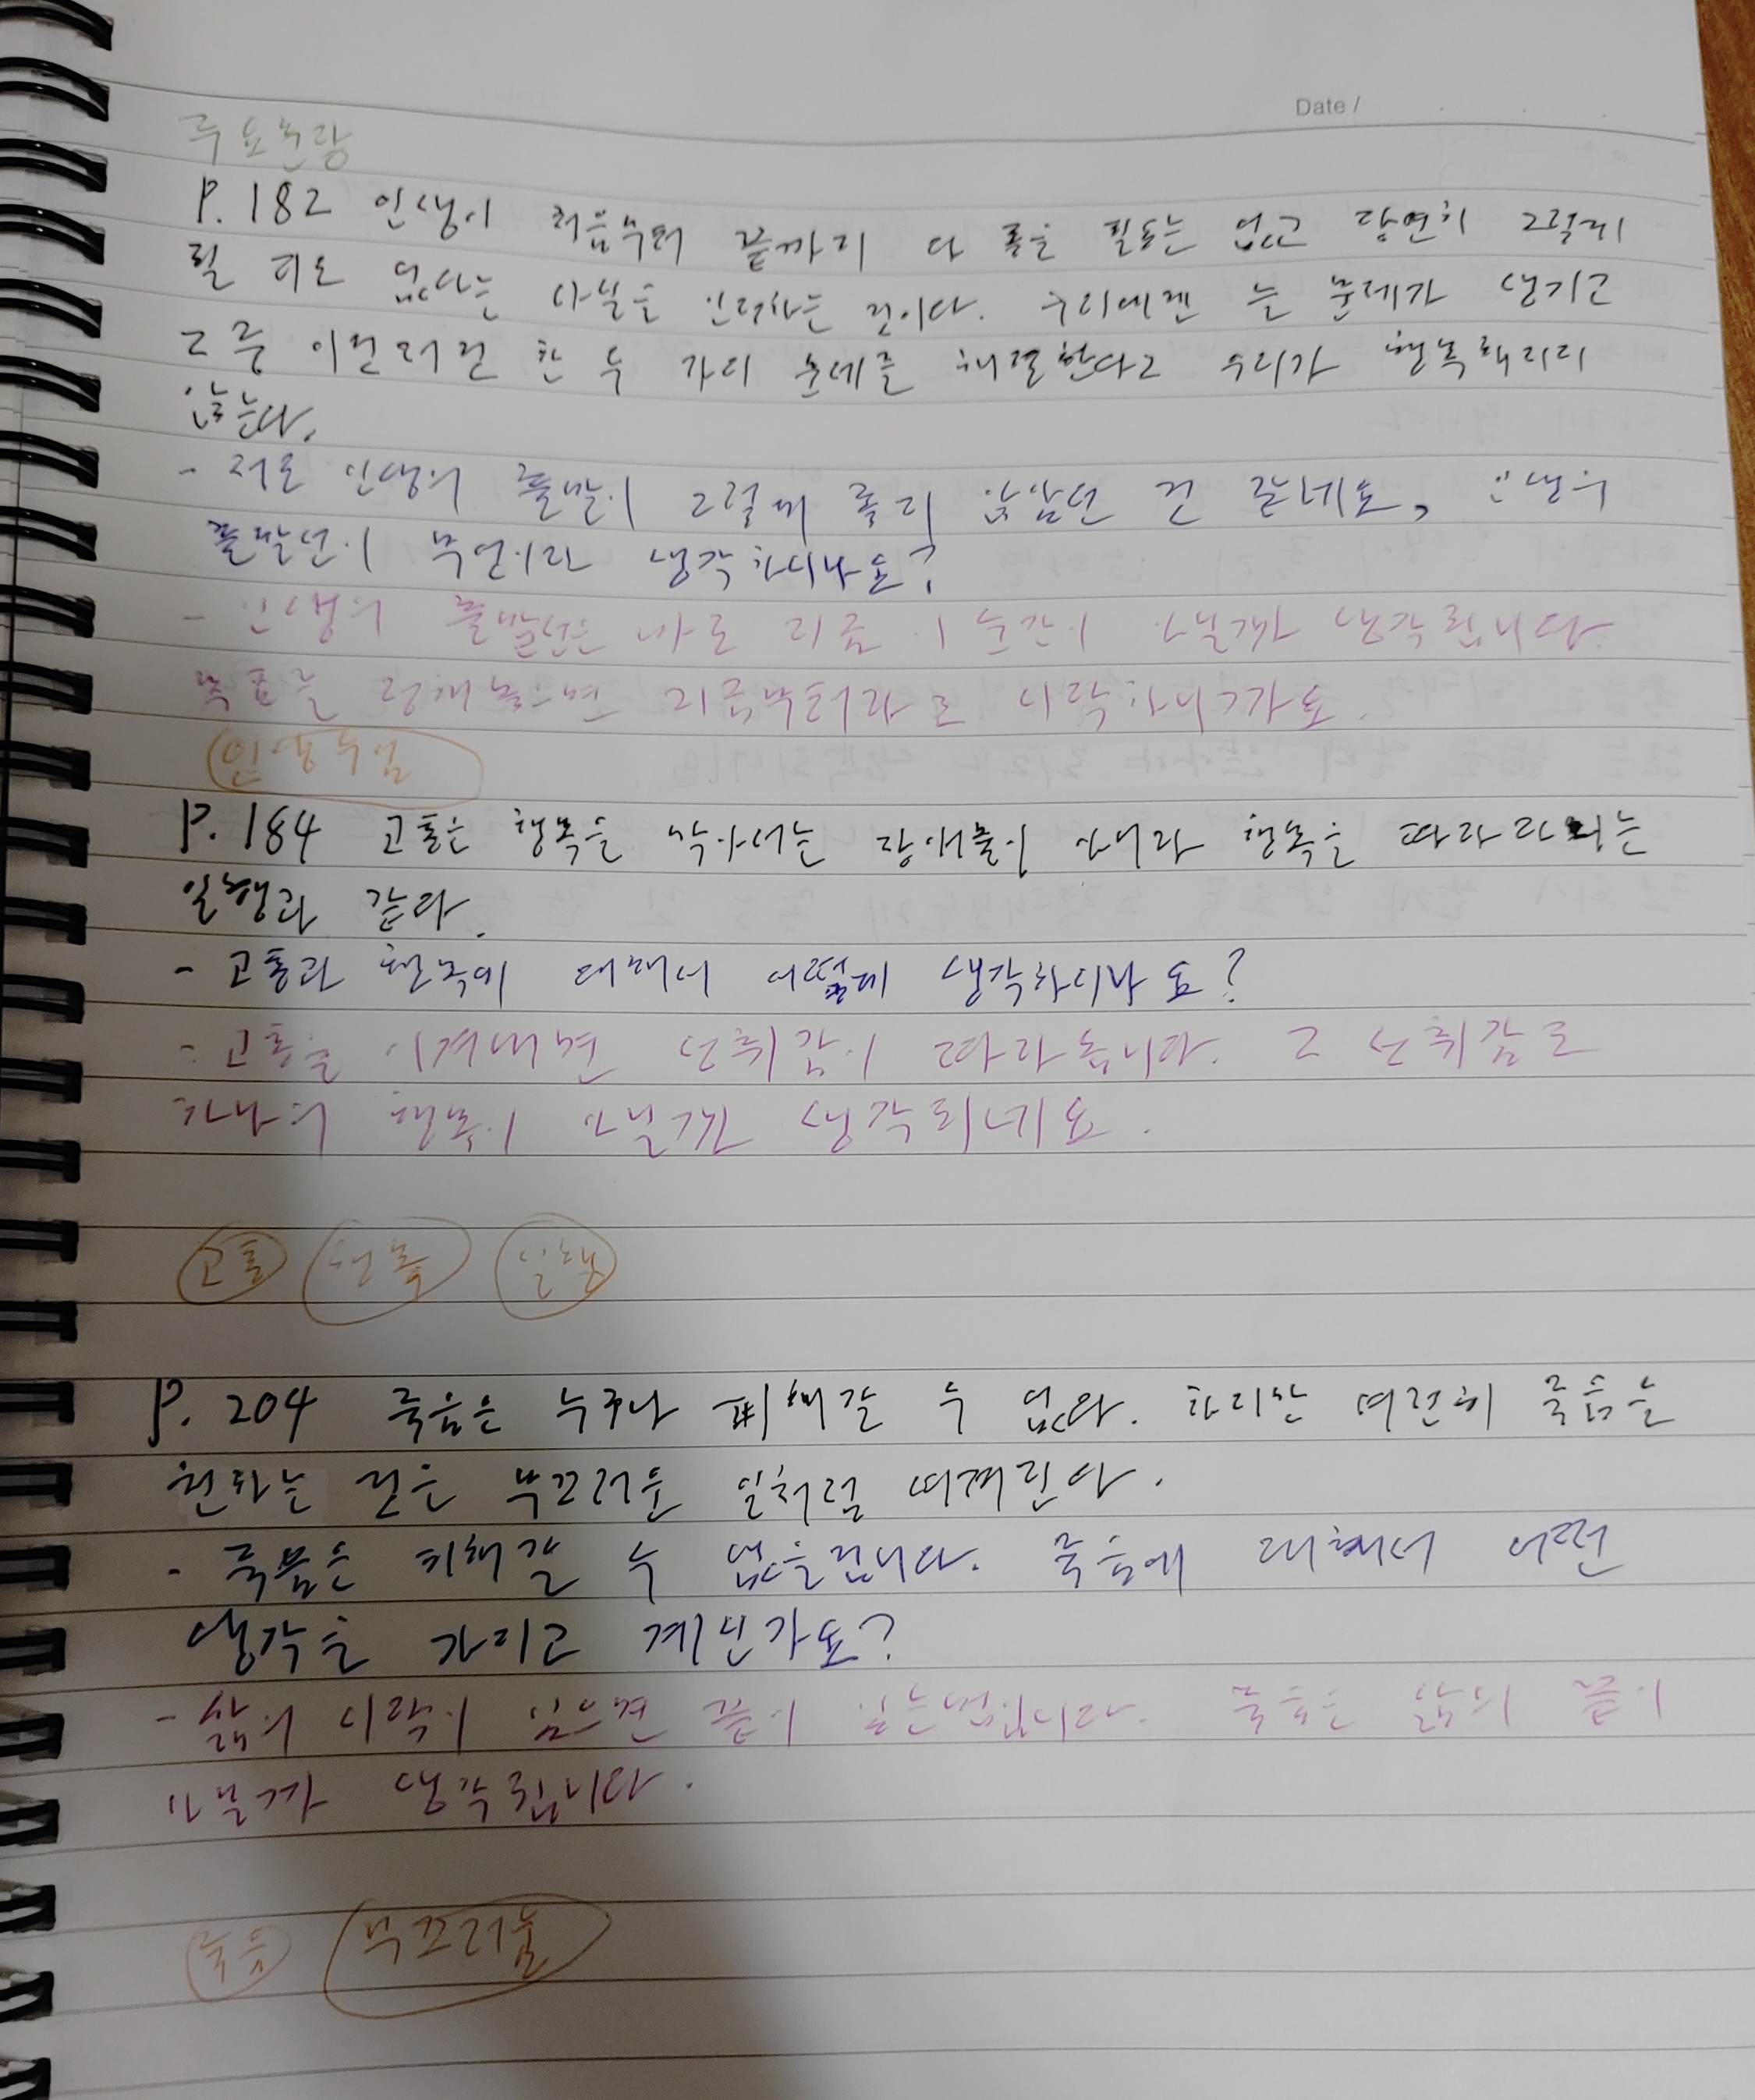 Date /
P. 182 인생이 처음부터 끝까지 다 좋을 필요는 없고 당연히 그렇게
될 리도 없다는 사실을 인정하는 것이다. 우리에겐 늘 문제가 생기고
그 중 이런저런 한 두 가지 문제를 해결한다고 우리가 행복해지지
않는다.
- 저도 인생의 출발이 그렇게 좋지 않았던 건 같네요, 인생의
출발선이 무엇이라 생각하시나요?
- 인생의 출발선은 바로 지금 이 순간이 아닐까 생각됩니다.
목표를 정해놓으면 지금부터라도 시작하시가요.
인생수업
P. 184 고통은 행복을 막아서는 장애물이 아니라 행복을 따라다니는
일행과 같다.
- 고통과 행복에 대해서 어떻게 생각하시나요?
- 고통을 이겨내면 성취감이 따라옵니다. 그 성취감도
하나의 행복이 아닐까 생각되네요.
고통 행복 일행
P. 204 죽음은 누구나 피해갈 수 없다. 하지만 여전히 죽음을
원하는 것은 부끄러운 일처럼 여겨진다.
- 죽음은 피해갈 수 없을겁니다. 죽음에 대해서 어떤
생각을 가지고 계신가요?
- 삶의 시작이 있으면 끝이 있는법입니다. 죽음은 삶의 끝이
아닐까 생각됩니다.
죽음 부끄러움